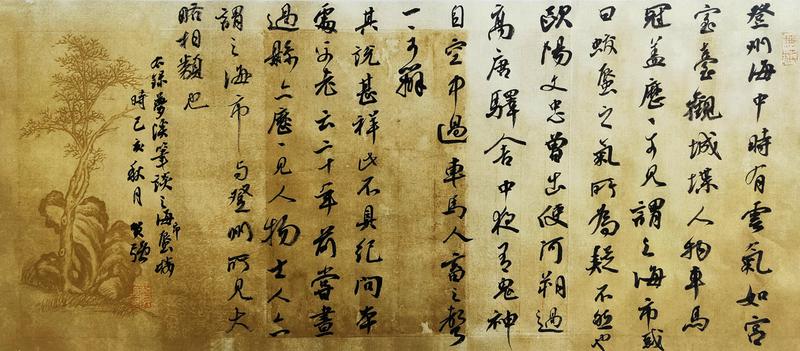 登州海中時有雲氣如宮
室臺觀城堞人物車馬
冠蓋歷歷可見謂之海市或
曰蛟蜃之氣所為疑不然也
歐陽文忠曾出使河朔過
高唐驛舍中夜有鬼神
自空中過車馬人畜之聲
一一可辨
其說甚祥此不具紀問本
處父老云二十年前嘗晝
過縣亦歷歷見人物土人亦
謂之海市與登州所見大
略相類也
右錄夢溪筆談之海市蜃樓
時己亥秋月